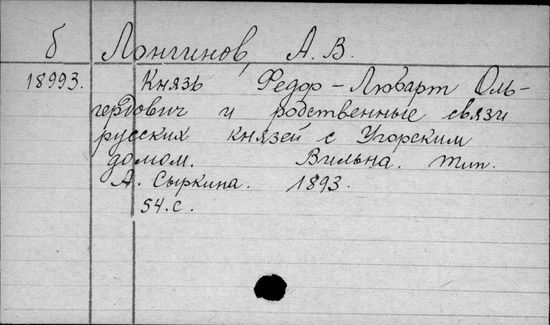 б Лонгинов, А. В.
18993. Князь Федор-Любарт Оль-
гердович и родственные связи
русских князей с Угорским
домом. Вильна. тип.
А. Сыркина. 1893.
54.с.